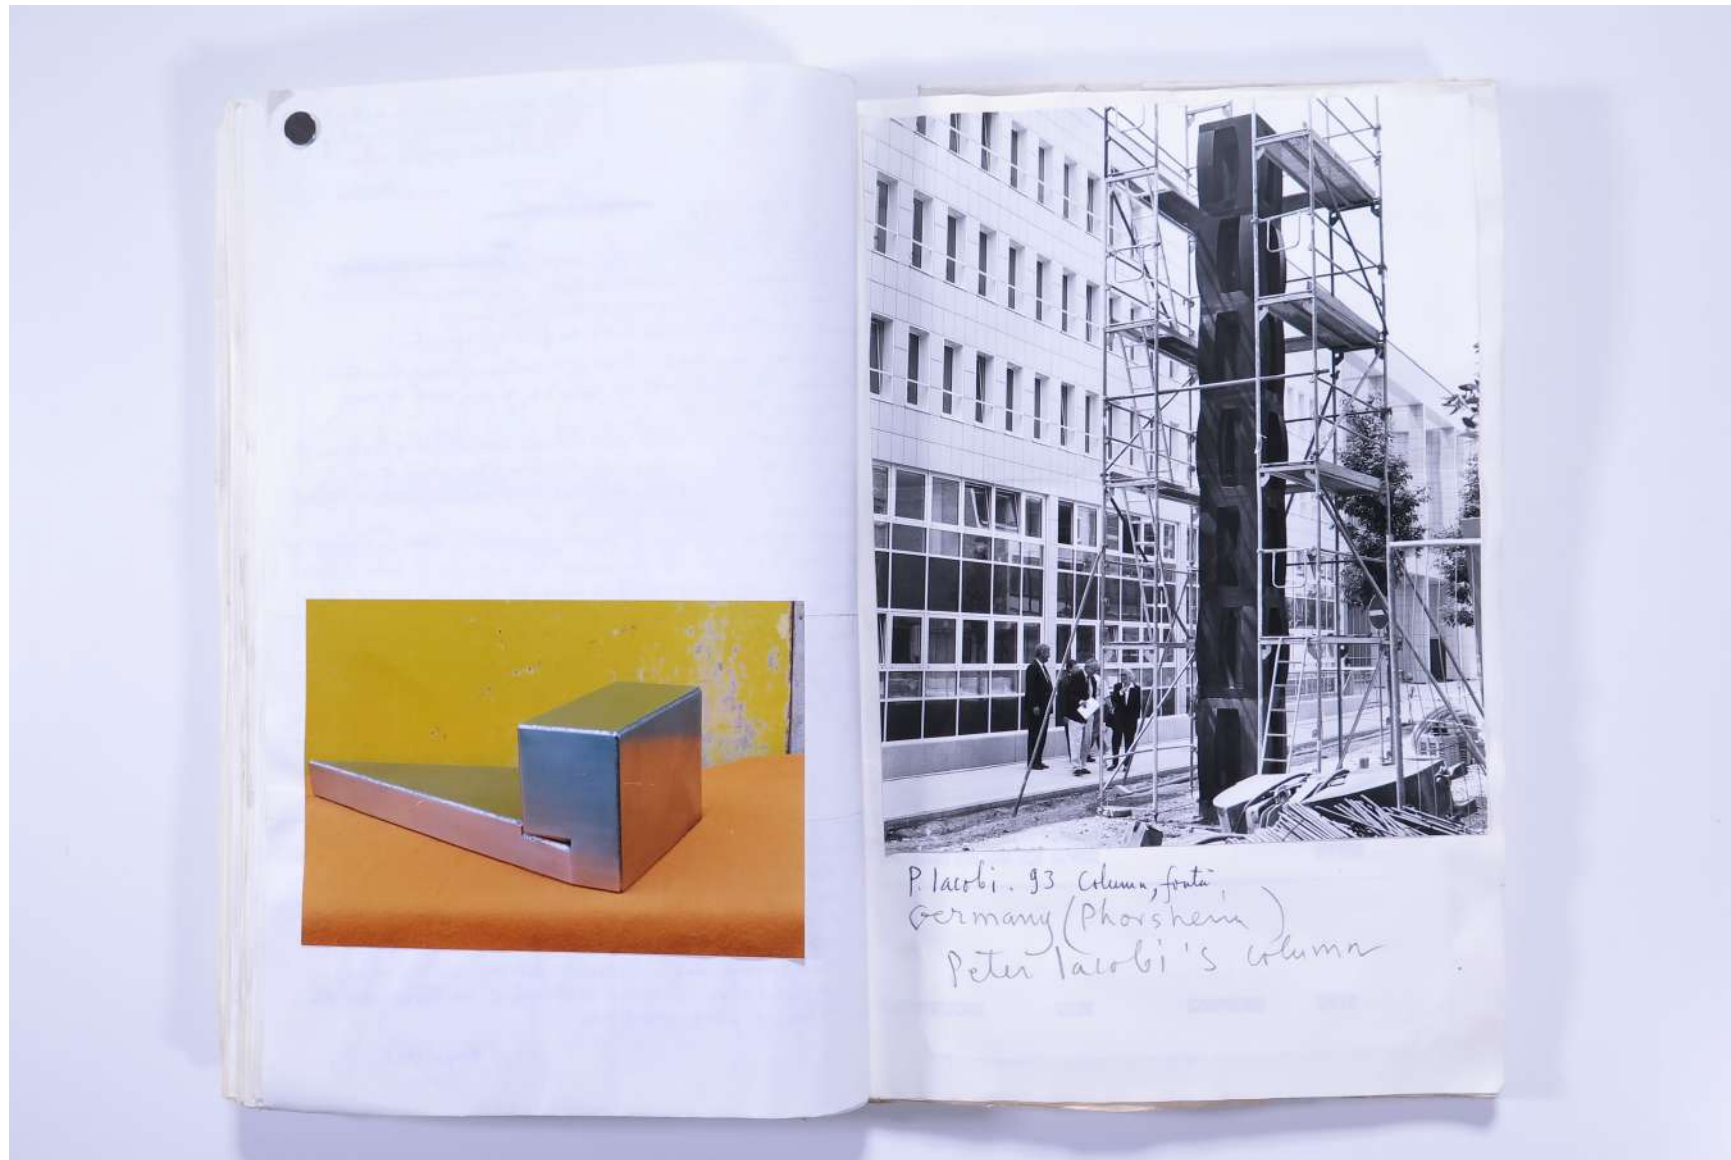 P. Iacobi. 93 Column, fontă,
Germany (Phorsheim)
Peter Iacobi's column